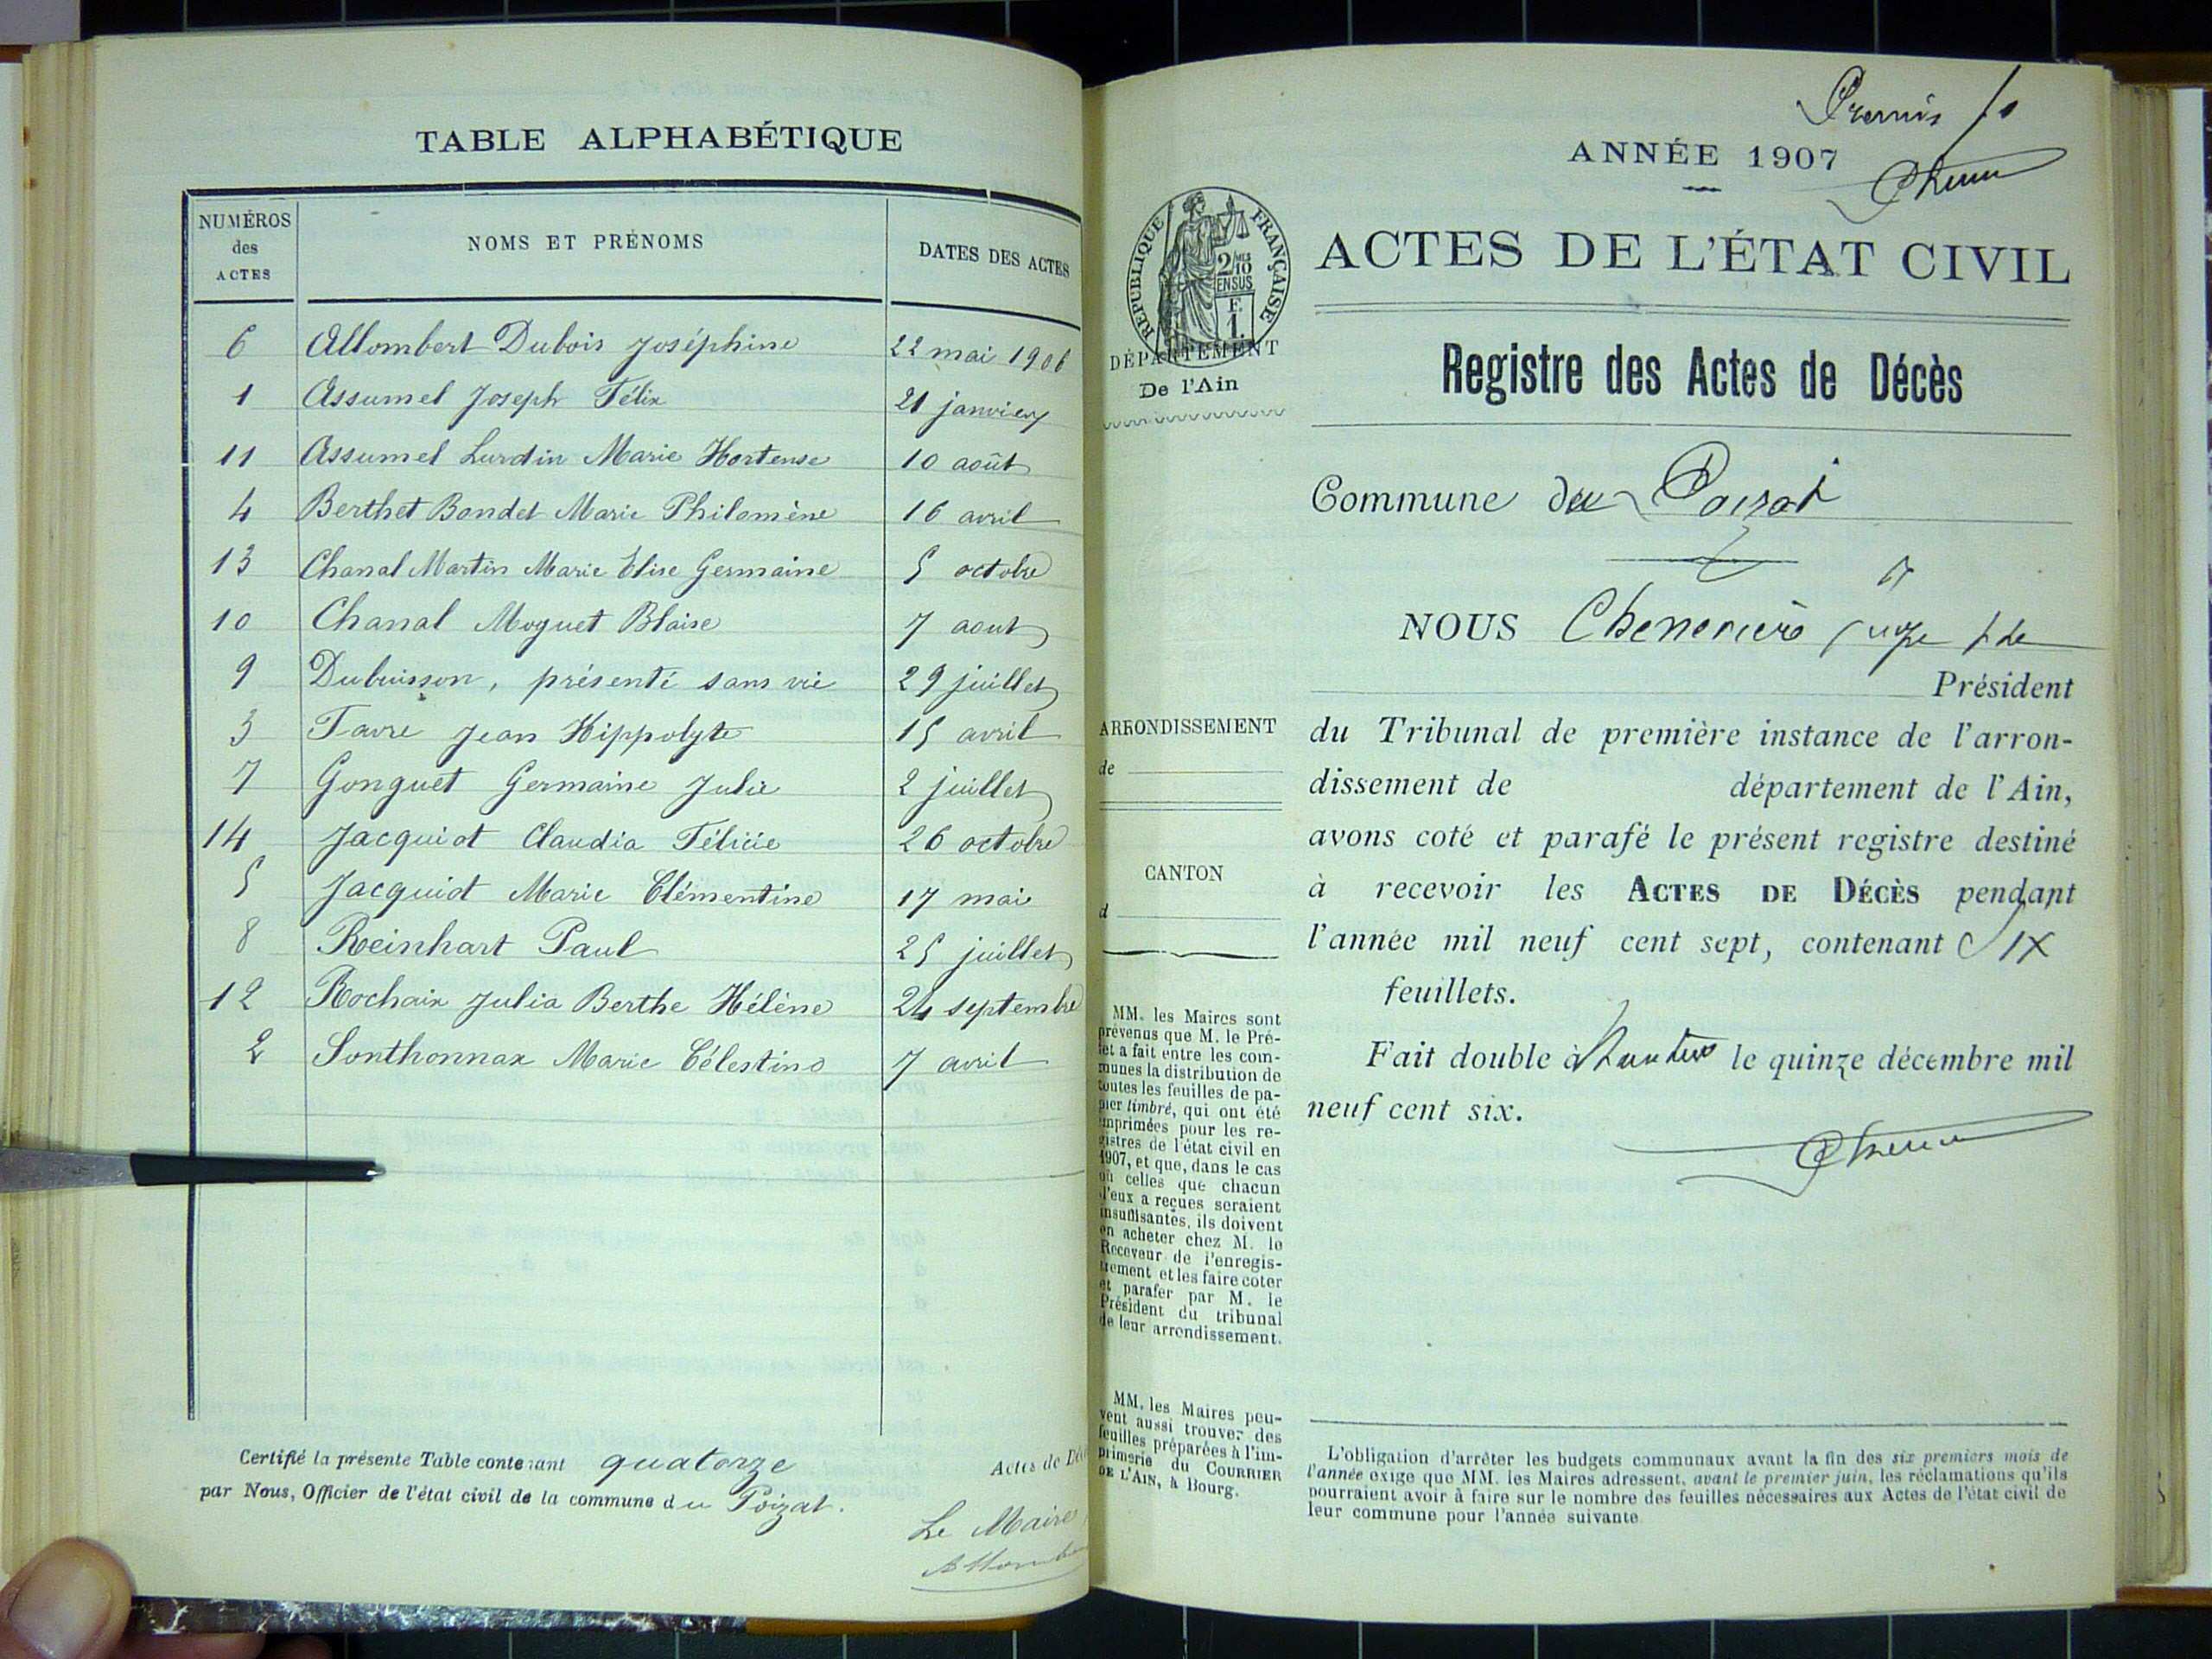 TABLE ALPHABÉTIQUE
NUMÉROS des ACTES
NOMS ET PRÉNOMS
DATES DES ACTES
6 Allombert Dubois Joséphine 22 mai 1906
1 Assumel Joseph Félix 21 janvier
11 Assumel Lurdin Marie Hortense 10 août
4 Berthet Bondet Marie Philomène 16 avril
13 Chanal Martin Marie Elise Germaine 5 octobre
10 Chanal Moguet Blaise 7 aout
9 Dubuisson, présenté sans vie 29 juillet
3 Favre Jean Hippolyte 15 avril
7 Gonguet Germaine Julie 2 juillet
14 Jacquiot Claudia Félicie 26 octobre
5 Jacquiot Marie Clémentine 17 mai
8 Reinhart Paul 25 juillet
12 Rochaix Julia Berthe Hélène 24 septembre
2 Sonthonnax Marie Célestine 7 avril
Certifié la présente Table contenant quatorze Actes de
par Nous, Officier de l'état civil de la commune du Poizat.
Le Maire
Premier
ANNÉE 1907
RÉPUBLIQUE FRANÇAISE
2/10
EN SUS
F.
1.
ACTES DE L'ÉTAT CIVIL
DÉPARTEMENT
De l'Ain
Registre des Actes de Décès
Commune du Poizat
NOUS juge
Président
ARRONDISSEMENT
de
du Tribunal de première instance de l'arron-
dissement de département de l'Ain,
avons coté et parafé le présent registre destiné
CANTON
d
à recevoir les ACTES DE DÉCÈS pendant
l'année mil neuf cent sept, contenant Six
feuillets.
Fait double à Nantua le quinze décembre mil
neuf cent six.
MM. les Maires sont
prévenus que M. le Pré-
fet a fait entre les com-
munes la distribution de
toutes les feuilles de pa-
pier timbré, qui ont été
imprimées pour les re-
gistres de l'état civil en
1907, et que, dans le cas
où celles que chacun
d'eux a reçues seraient
insuffisantes, ils doivent
en acheter chez M. le
Receveur de l'enregis-
trement et les faire coter
et parafer par M. le
Président du tribunal
de leur arrondissement.
MM. les Maires peu-
vent aussi trouver des
feuilles préparées à l'im-
primerie du COURRIER
DE L'AIN, à Bourg.
L'obligation d'arrêter les budgets communaux avant la fin des six premiers mois de
l'année exige que MM. les Maires adressent, avant le premier juin, les réclamations qu'ils
pourraient avoir à faire sur le nombre des feuilles nécessaires aux Actes de l'état civil de
leur commune pour l'année suivante